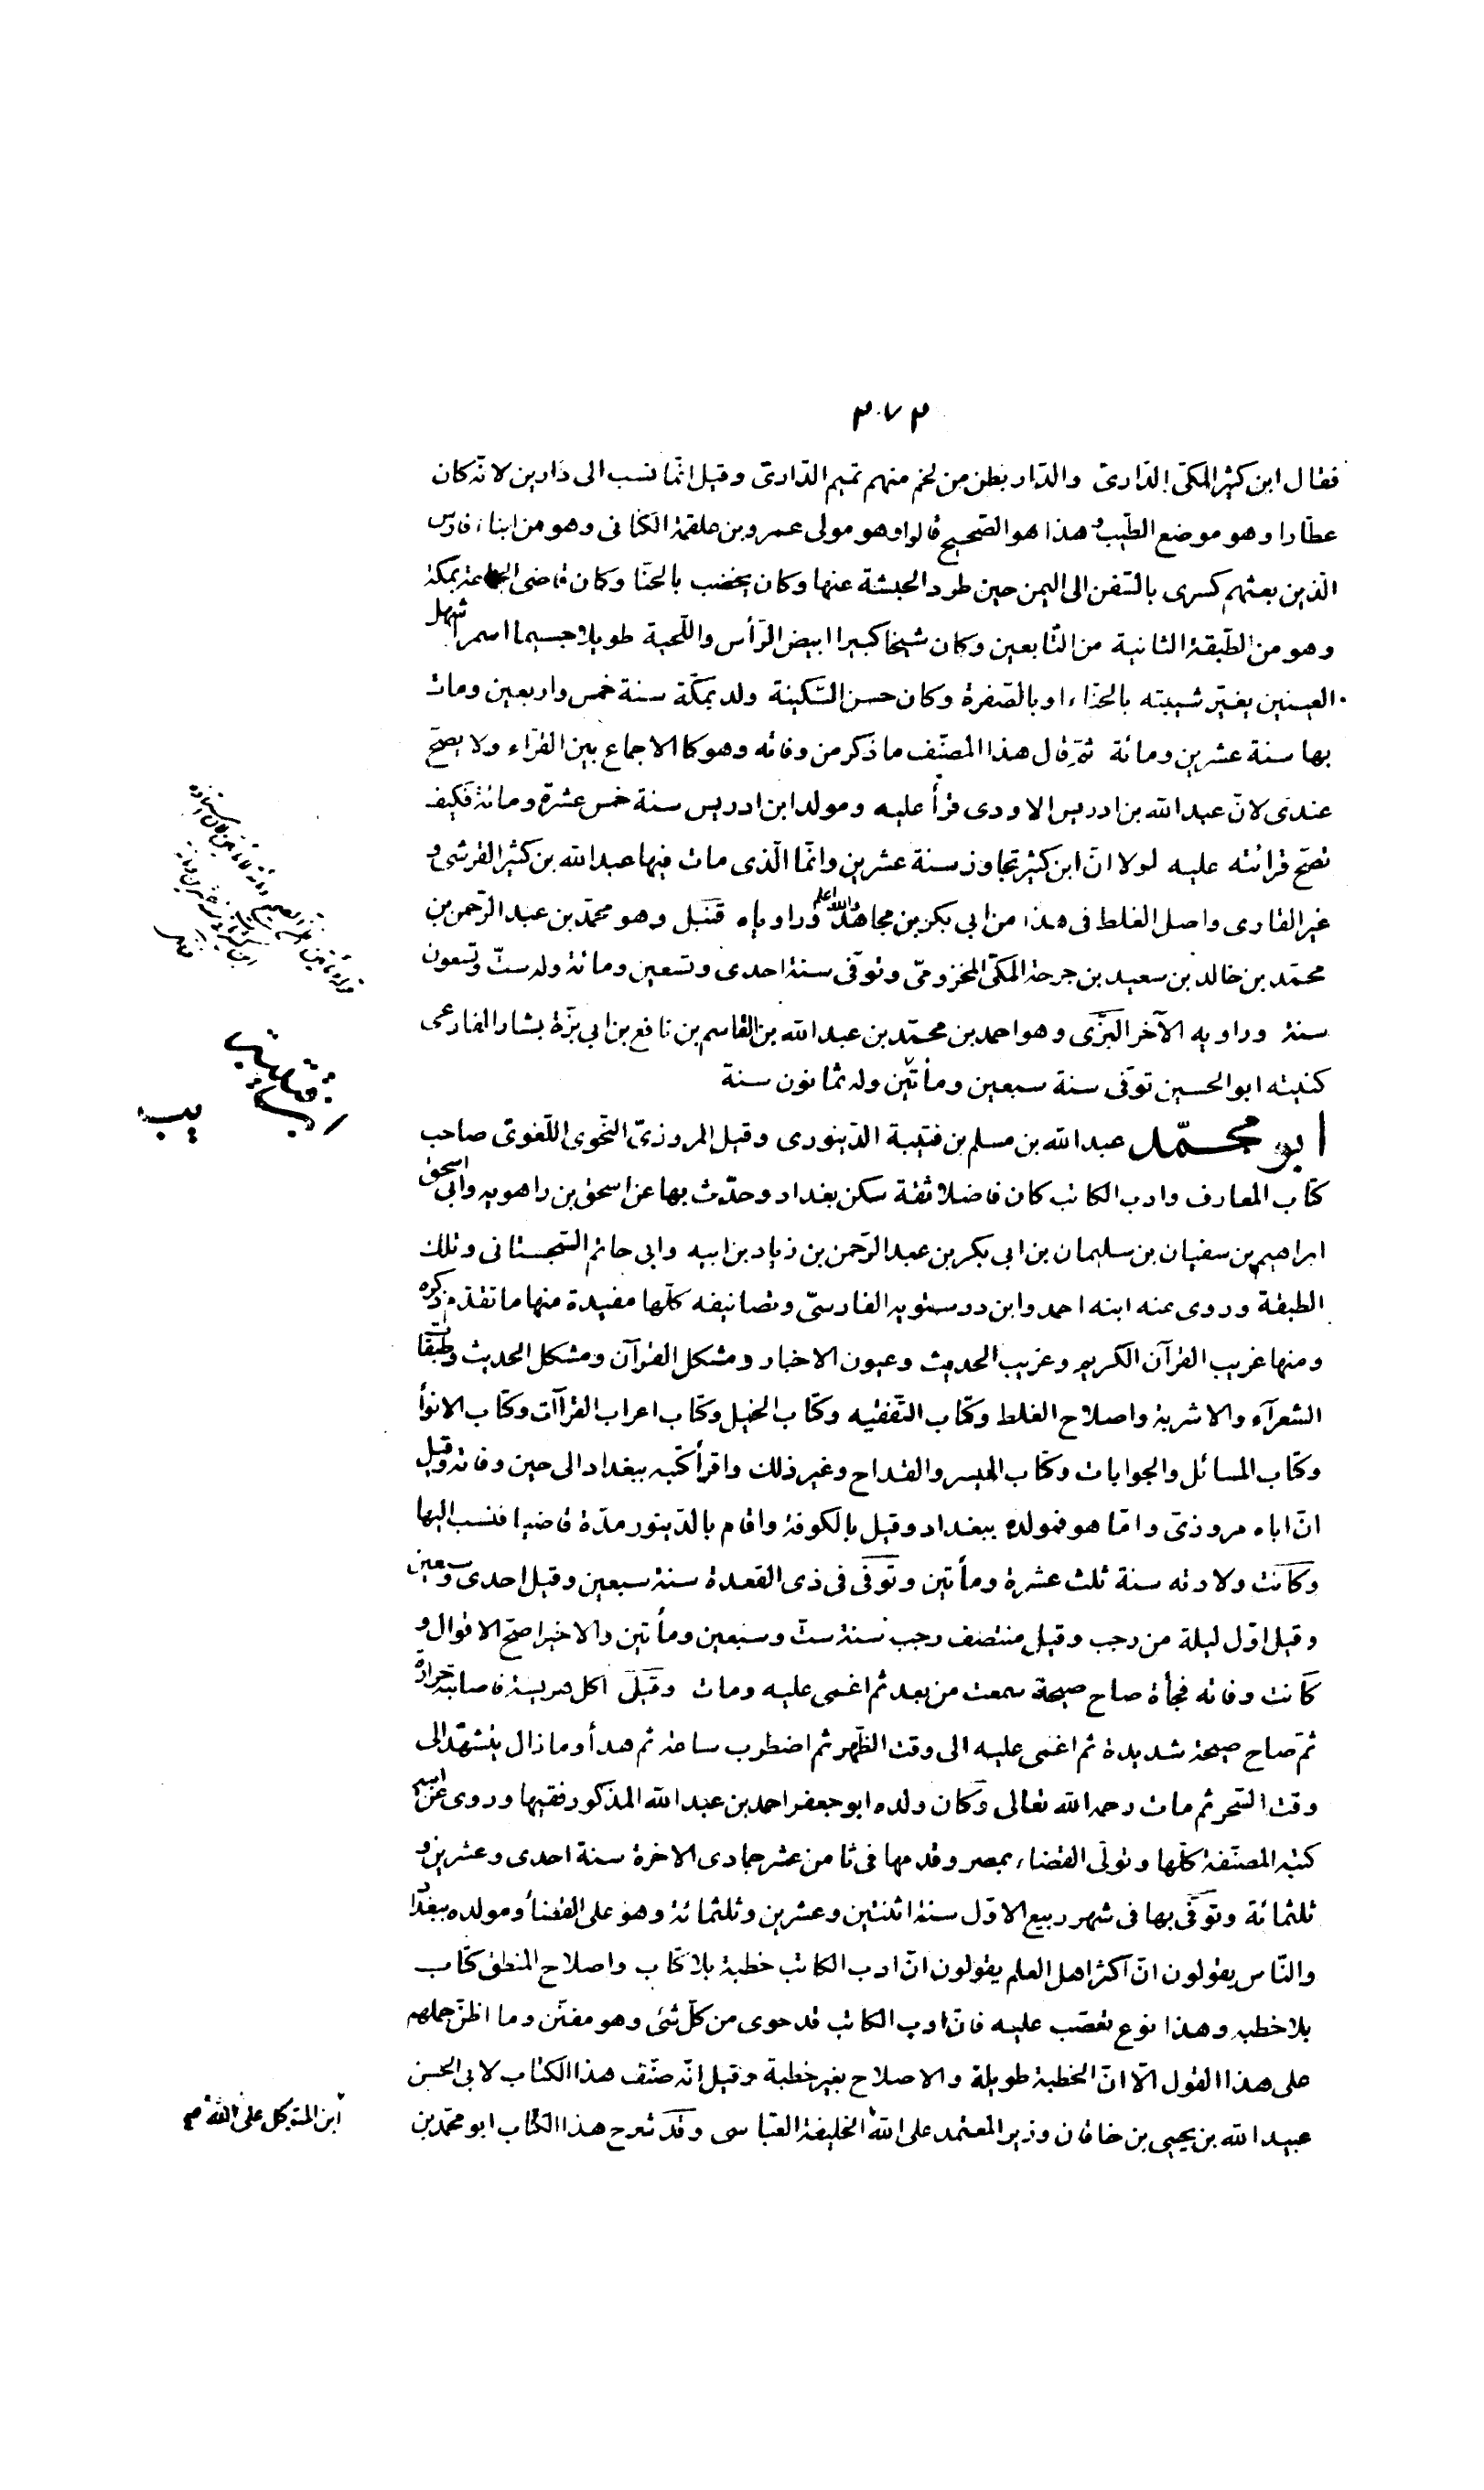 ٢٧٣
فقال ابن كثير المكّى الدّارىّ والدّار بطن من لخم منهم تميم الدّارىّ وقيل انّما نسب الى دارين لانّه كان
عطّارا وهو موضع الطّيب وهذا هو الصّحيح قالوا وهو مولى عمرو بن علقمة الكنانى وهو من ابناء فارس
الّذين بعثهم كسرى بالسّفن الى اليمن حين طرد الحبشة عنها وكان يخضب بالحنّا وكان قاضى الجماعة بمكة
وهو من الطّبقة الثانية من التّابعين وكان شيخا كبيرا ابيض الرّأس واللّحية طويلا جسيما اسمر اشهل
العينين يغيّر شيبته بالحنّاء او بالصّفرة وكان حسن السّكينة ولد بمكّة سنة خمس واربعين ومات
بها سنة عشرين ومائة ثمّ قال هذا المصنّف ما ذكر من وفاته وهو كالاجماع بين القرّاء ولا يصحّ
عندى لانّ عبد الله بن ادريس الاودى قرأ عليه ومولد ابن ادريس سنة خمس عشرة ومائة فكيف
تصحّ قرائته عليه لولا انّ ابن كثير تجاوز سنة عشرين وانّما الّذى مات فيها عبد الله بن كثير القرشى و
غير القارى واصل الغلط فى هذا من ابى بكر بن مجاهد والله اعلم وراوياه قنبل وهو محمّد بن عبد الرّحمن بن
محمّد بن خالد بن سعيد بن جرجة المكّى المخزومىّ وتوفّى سنة احدى وتسعين ومائة وله ستّ وتسعون
سنة وراويه الآخر البزّى وهو احمد بن محمّد بن عبد الله بن القاسم بن نافع بن ابى بزّة بشار الفارعى
كنيته ابو الحسين توفّى سنة سبعين ومأتين وله ثمانون سنة
ابو محمّد عبد الله بن مسلم بن قتيبة الدّينورى وقيل المروزىّ النّحوى اللّغوىّ صاحب
كتاب المعارف وادب الكاتب كان فاضلا ثقة سكن بغداد وحدّث بها عن اسحق بن راهويه وابى اسحق
ابراهيم بن سفيان بن سليمان بن ابى بكر بن عبد الرّحمن بن زياد بن ابيه وابى حاتم السّجستانى وتلك
الطبقة وروى عنه ابنه احمد وابن درستويه الفارسىّ وتصانيفه كلّها مفيدة منها ما تقدّم ذكره
ومنها غريب القرآن الكريم وغريب الحديث وعيون الاخبار ومشكل القرآن ومشكل الحديث وطبقات
الشعرآء والاشربة واصلاح الغلط وكتاب التّفقيه وكتاب الخيل وكتاب اعراب القرآآت وكتاب الانوأ
وكتاب المسائل والجوابات وكتاب الميسر والقداح وغير ذلك واقرأ كتبه ببغداد الى حين وفاته وقيل
انّ اباه مروزىّ وامّا هو فمولده ببغداد وقيل بالكوفة واقام بالدّينور مدّة قاضيا فنسب اليها
وكانت ولادته سنة ثلث عشرة ومأتين وتوفّى فى ذى القعدة سنة سبعين وقيل احدى وسبعين
وقيل اوّل ليلة من رجب وقيل منتصف رجب سنة ستّ وسبعين ومأتين والاخير اصحّ الاقوال و
كانت وفاته فجأة صاح صيحة سمعت من بعد ثم اغمى عليه ومات وقيل اكل هريسة فاصابته حرارة
ثمّ صاح صيحة شديدة ثم اغمى عليه الى وقت الظّهر ثم اضطرب ساعة ثم هدأ وما زال يتشهّد الى
وقت السّحر ثم مات رحمه الله تعالى وكان ولده ابو جعفر احمد بن عبد الله المذكور فقيها وروى عن ابيه
كتبه المصنّفة كلّها وتولّى القضاء بمصر وقدمها فى ثامن عشر جمادى الاخرة سنة احدى وعشرين و
ثلثمائة وتوفّى بها فى شهر ربيع الاوّل سنة اثنتين وعشرين وثلثمائة وهو على القضأ ومولده ببغداد
والنّاس يقولون انّ اكثر اهل العلم يقولون انّ ادب الكاتب خطبة بلا كتاب واصلاح المنطق كتاب
بلا خطبه وهذا نوع تعصّب عليه فانّ ادب الكاتب قد حوى من كلّ شئ وهو مفنّن وما اظنّ حملهم
على هذا القول الّا انّ الخطبة طويلة والاصلاح بغير خطبة وقيل انّه صنّف هذا الكتاب لابى الحسن
عبيد الله بن يحيى بن خاقان وزير المعتمد على الله الخليفة العبّاسى وقد شرح هذا الكتاب ابو محمّد بن
ابن قتيبة
ابن المتوكل على الله صح